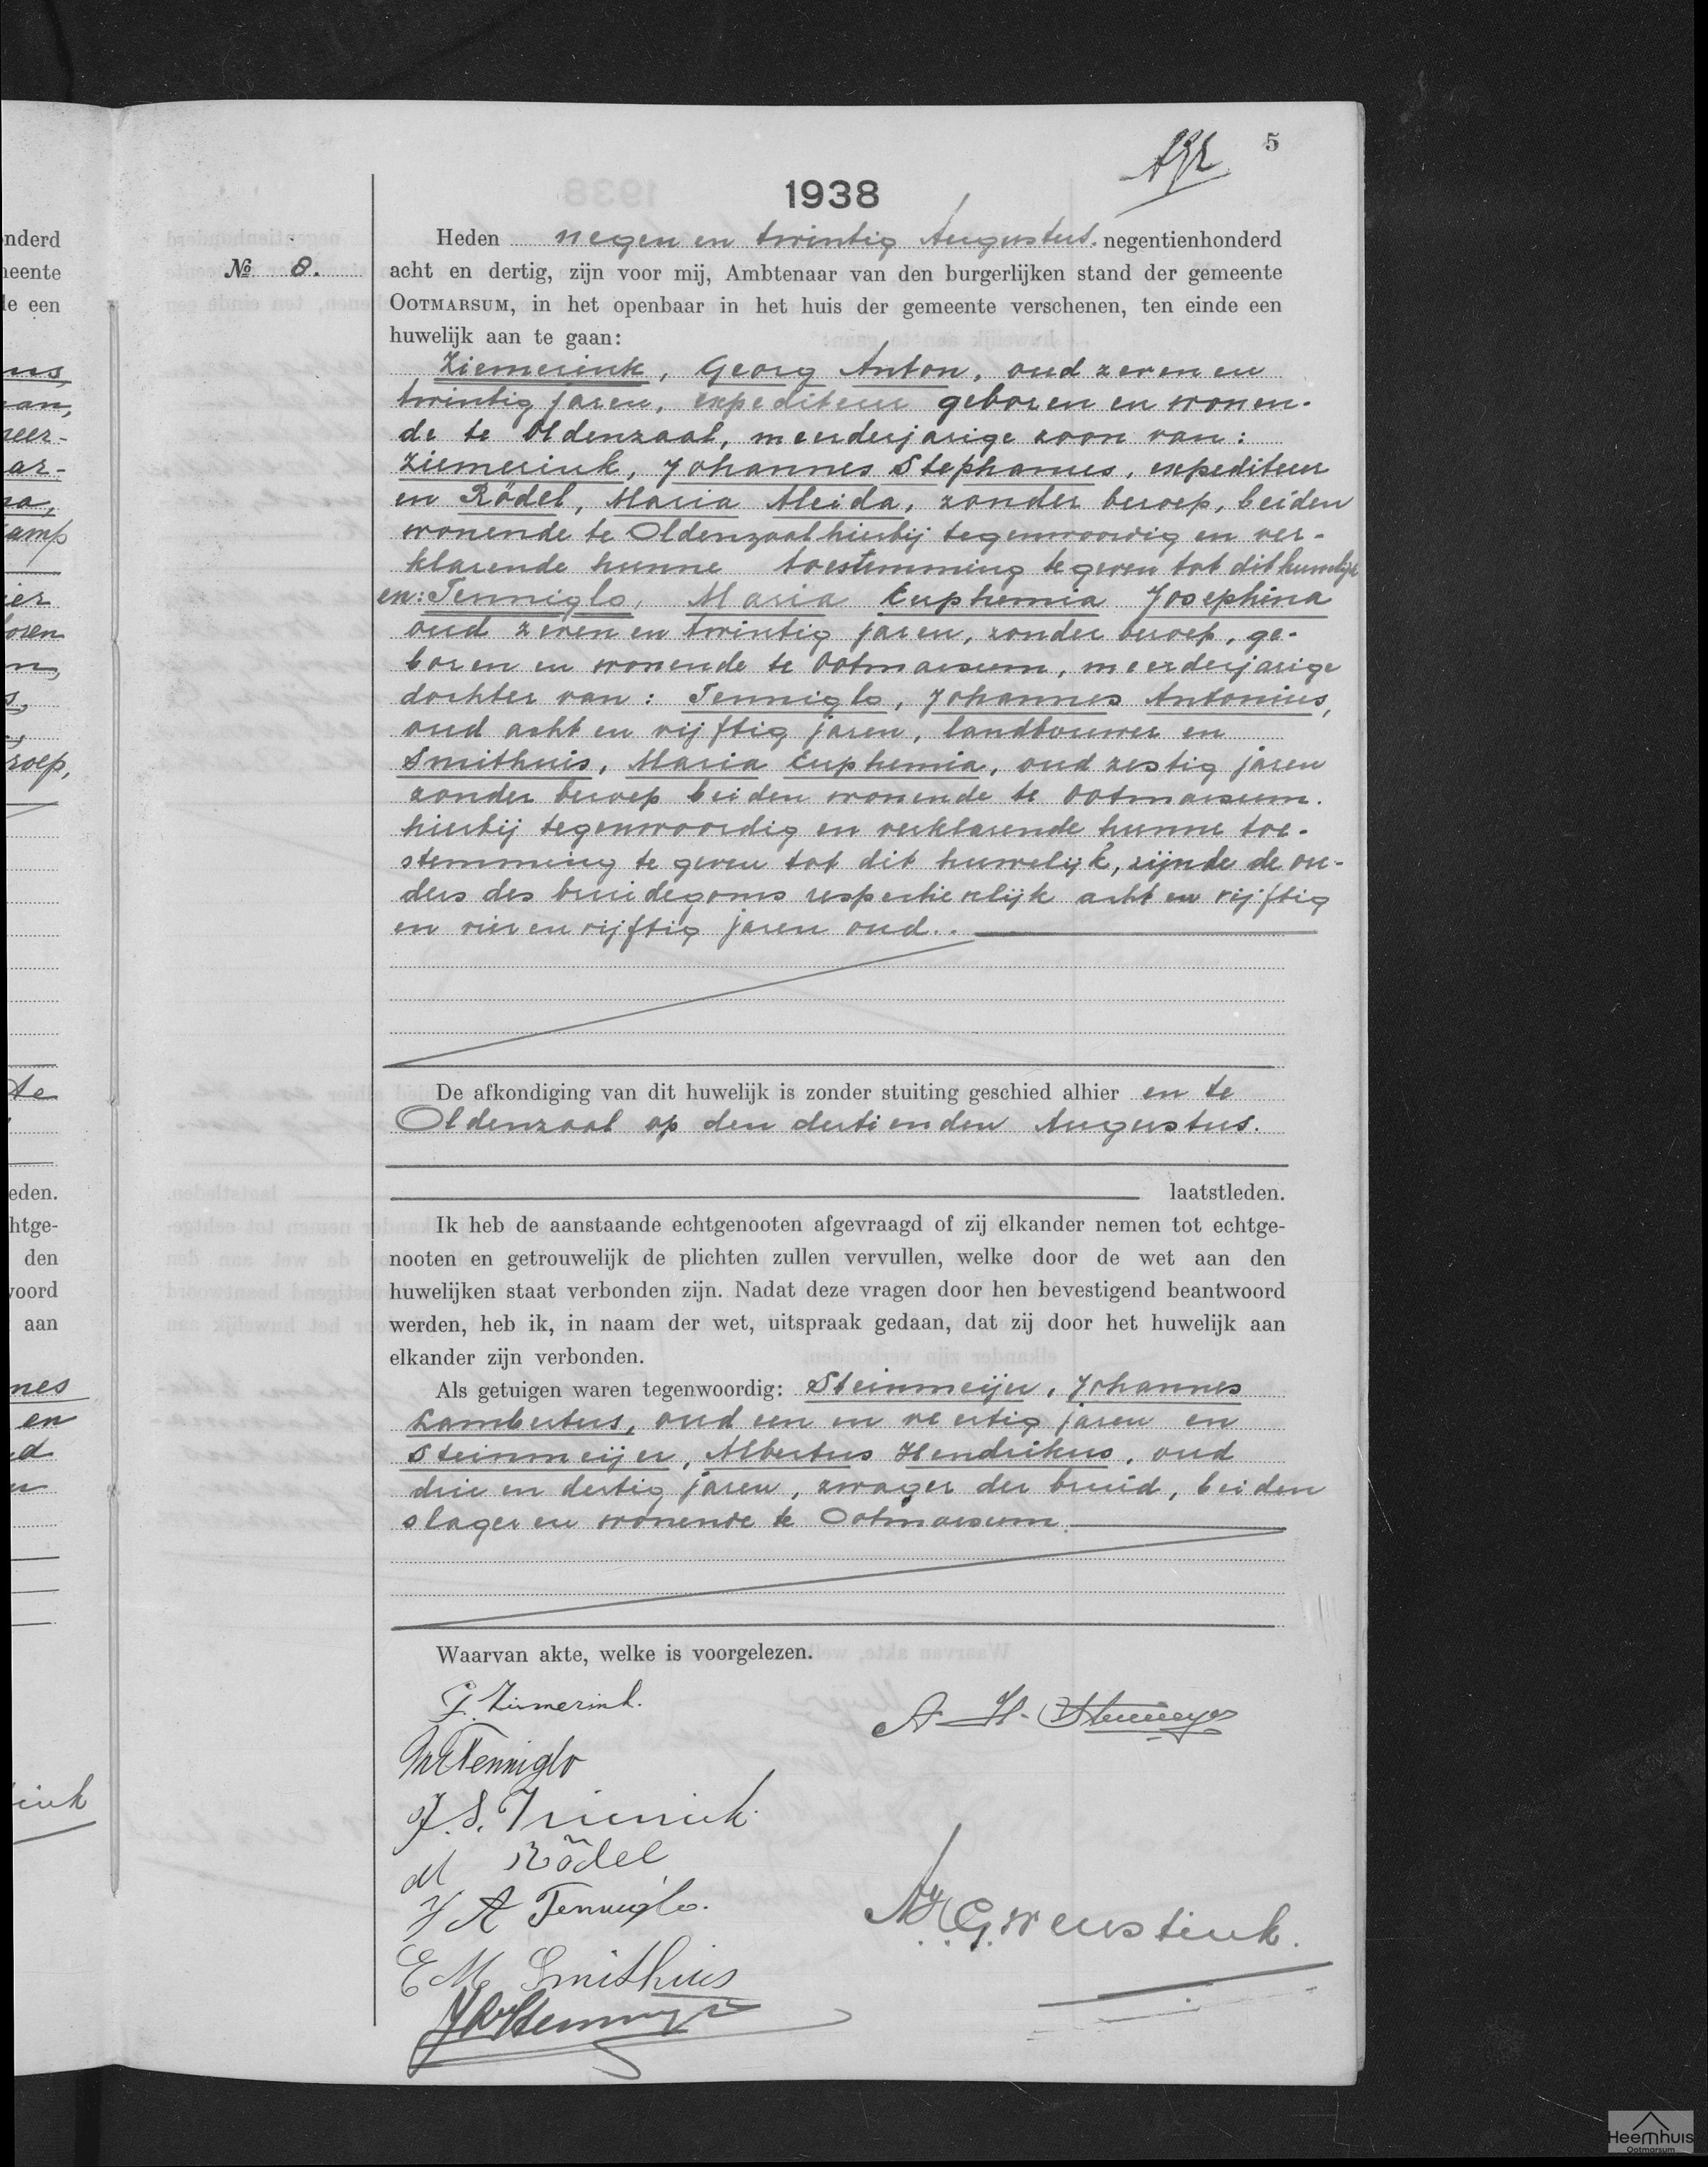 5
1938
Heden negen en twintig Augustus. negentienhonderd
№ 8.
acht en dertig, zijn voor mij, Ambtenaar van den burgerlijken stand der gemeente
OOTMARSUM, in het openbaar in het huis der gemeente verschenen, ten einde een
huwelijk aan te gaan:
Ziemerink, Georg Anton, oud zeven en
twintig jaren, expediteur geboren en wonen-
de te Oldenzaal, meerderjarige zoon van:
Ziemerink, Johannes Stephanus, expediteur
en Rödel, Maria Aleida, zonder beroep, beiden
wonende te Oldenzaal hierbij tegenwoordig en ver-
klarende hunne toestemming te geven tot dit huwelijk
en: Tenniglo, Maria Euphemia Josephina
oud zeven en twintig jaren, zonder beroep, ge-
boren en wonende te Ootmarsum, meerderjarige
dochter van: Tenniglo, Johannes Antonius,
oud acht en vijftig jaren, landbouwer en
Smithuis, Maria Euphemia, oud zestig jaren
zonder beroep beiden wonende te Ootmarsum.
hierbij tegenwoordig en verklarende hunne toe-
stemming te geven tot dit huwelijk, zijnde de ou-
ders des bruidegoms respectievelijk acht en vijftig
en vier en vijftig jaren oud..
De afkondiging van dit huwelijk is zonder stuiting geschied alhier en te
Oldenzaal op den dertienden Augustus.
laatstleden.
Ik heb de aanstaande echtgenooten afgevraagd of zij elkander nemen tot echtge-
nooten en getrouwelijk de plichten zullen vervullen, welke door de wet aan den
huwelijken staat verbonden zijn. Nadat deze vragen door hen bevestigend beantwoord
werden, heb ik, in naam der wet, uitspraak gedaan, dat zij door het huwelijk aan
elkander zijn verbonden.
Als getuigen waren tegenwoordig: Steinmeijer, Johannes
Lambertus, oud een en veertig jaren en
Steinmeijer, Albertus Hendrikus, oud
drie en dertig jaren, zwager der bruid, beiden
slager en wonende te Ootmarsum.
Waarvan akte, welke is voorgelezen.
G. Ziemerink.
A. H. Steinmeyer
M E Tenniglo
J. S. Ziemerink.
M Rödel
J A Tenniglo.
G. Weustink.
E M Smithuis
Heemhuis
Ootmarsum